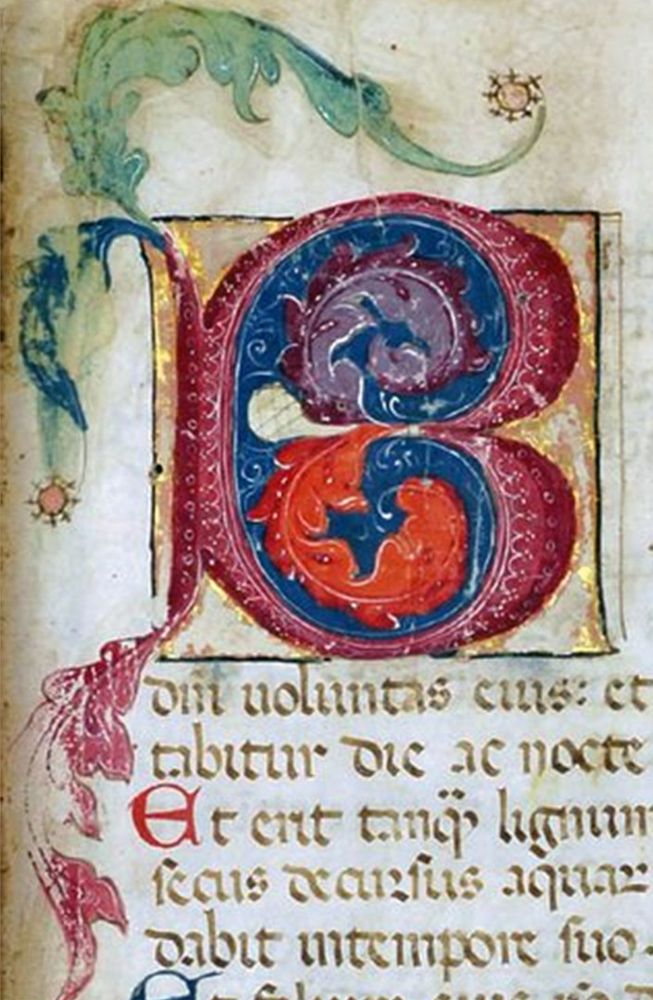 B
dm̄ uoluntas eius: et
tabitur die ac nocte
Et erit tanq̄ lignum
secus decursus aquar
dabit intempore suo.
Et folium eius